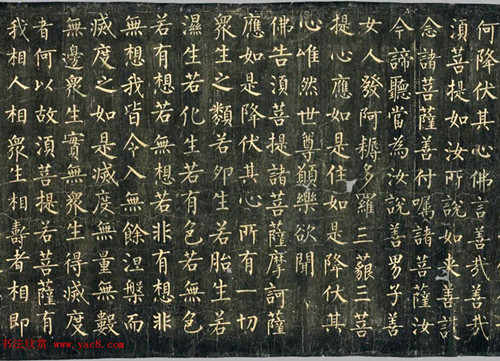 何降伏其心佛言善哉善哉
湏菩提如汝所說如来善護
念諸菩薩善付囑諸菩薩汝
今諦聽當為汝說善男子善
女人發阿耨多羅三藐三菩
提心應如是住如是降伏其
心唯然世尊願樂欲聞
佛告湏菩提諸菩薩摩訶薩
應如是降伏其心所有一切
衆生之類若卵生若胎生若
濕生若化生若有色若無色
若有想若無想若非有想非
無想我皆令入無餘涅槃而
滅度之如是滅度無量無數
無邊衆生實無衆生得滅度
者何以故湏菩提若菩薩有
我相人相衆生相壽者相即
书法欣赏
www.yac8.com